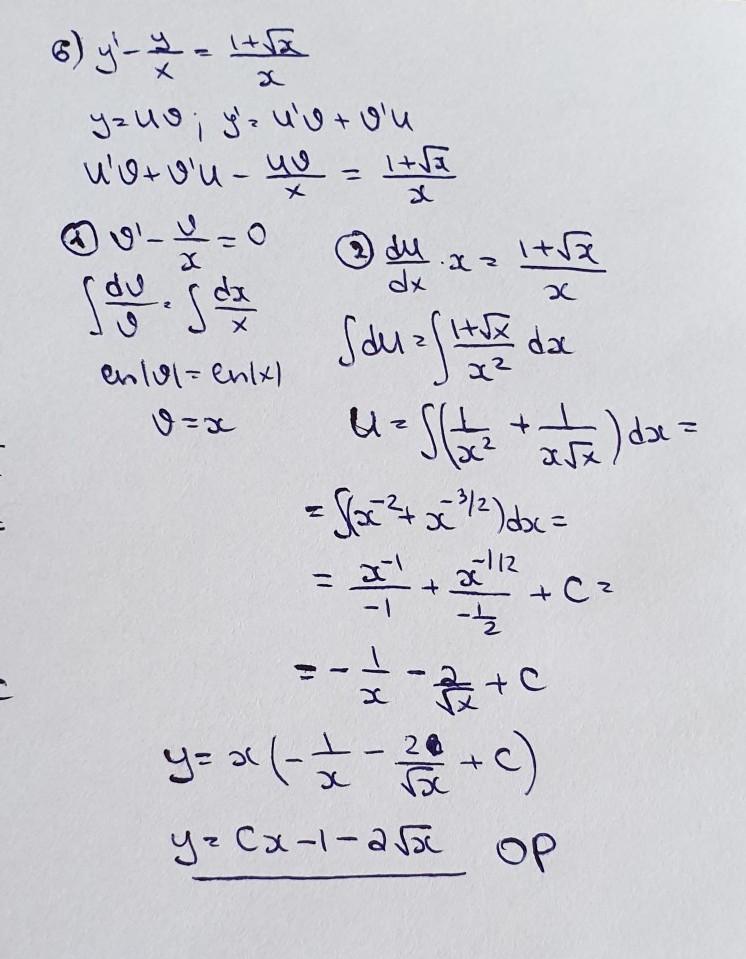 6) y' - y/x = (1+√x)/x
y = uv; y' = u'v + v'u
u'v + v'u - uv/x = (1+√x)/x
① v' - v/x = 0
∫ dv/v = ∫ dx/x
ln|v| = ln|x|
v = x
② du/dx · x = (1+√x)/x
∫du = ∫ (1+√x)/x² dx
u = ∫(1/x² + 1/(x√x)) dx =
= ∫(x⁻² + x^(-3/2)) dx =
= x⁻¹/(-1) + x^(-1/2)/(-1/2) + C =
= - 1/x - 2/√x + C
y = x(- 1/x - 2/√x + C)
y = Cx - 1 - 2√x OP